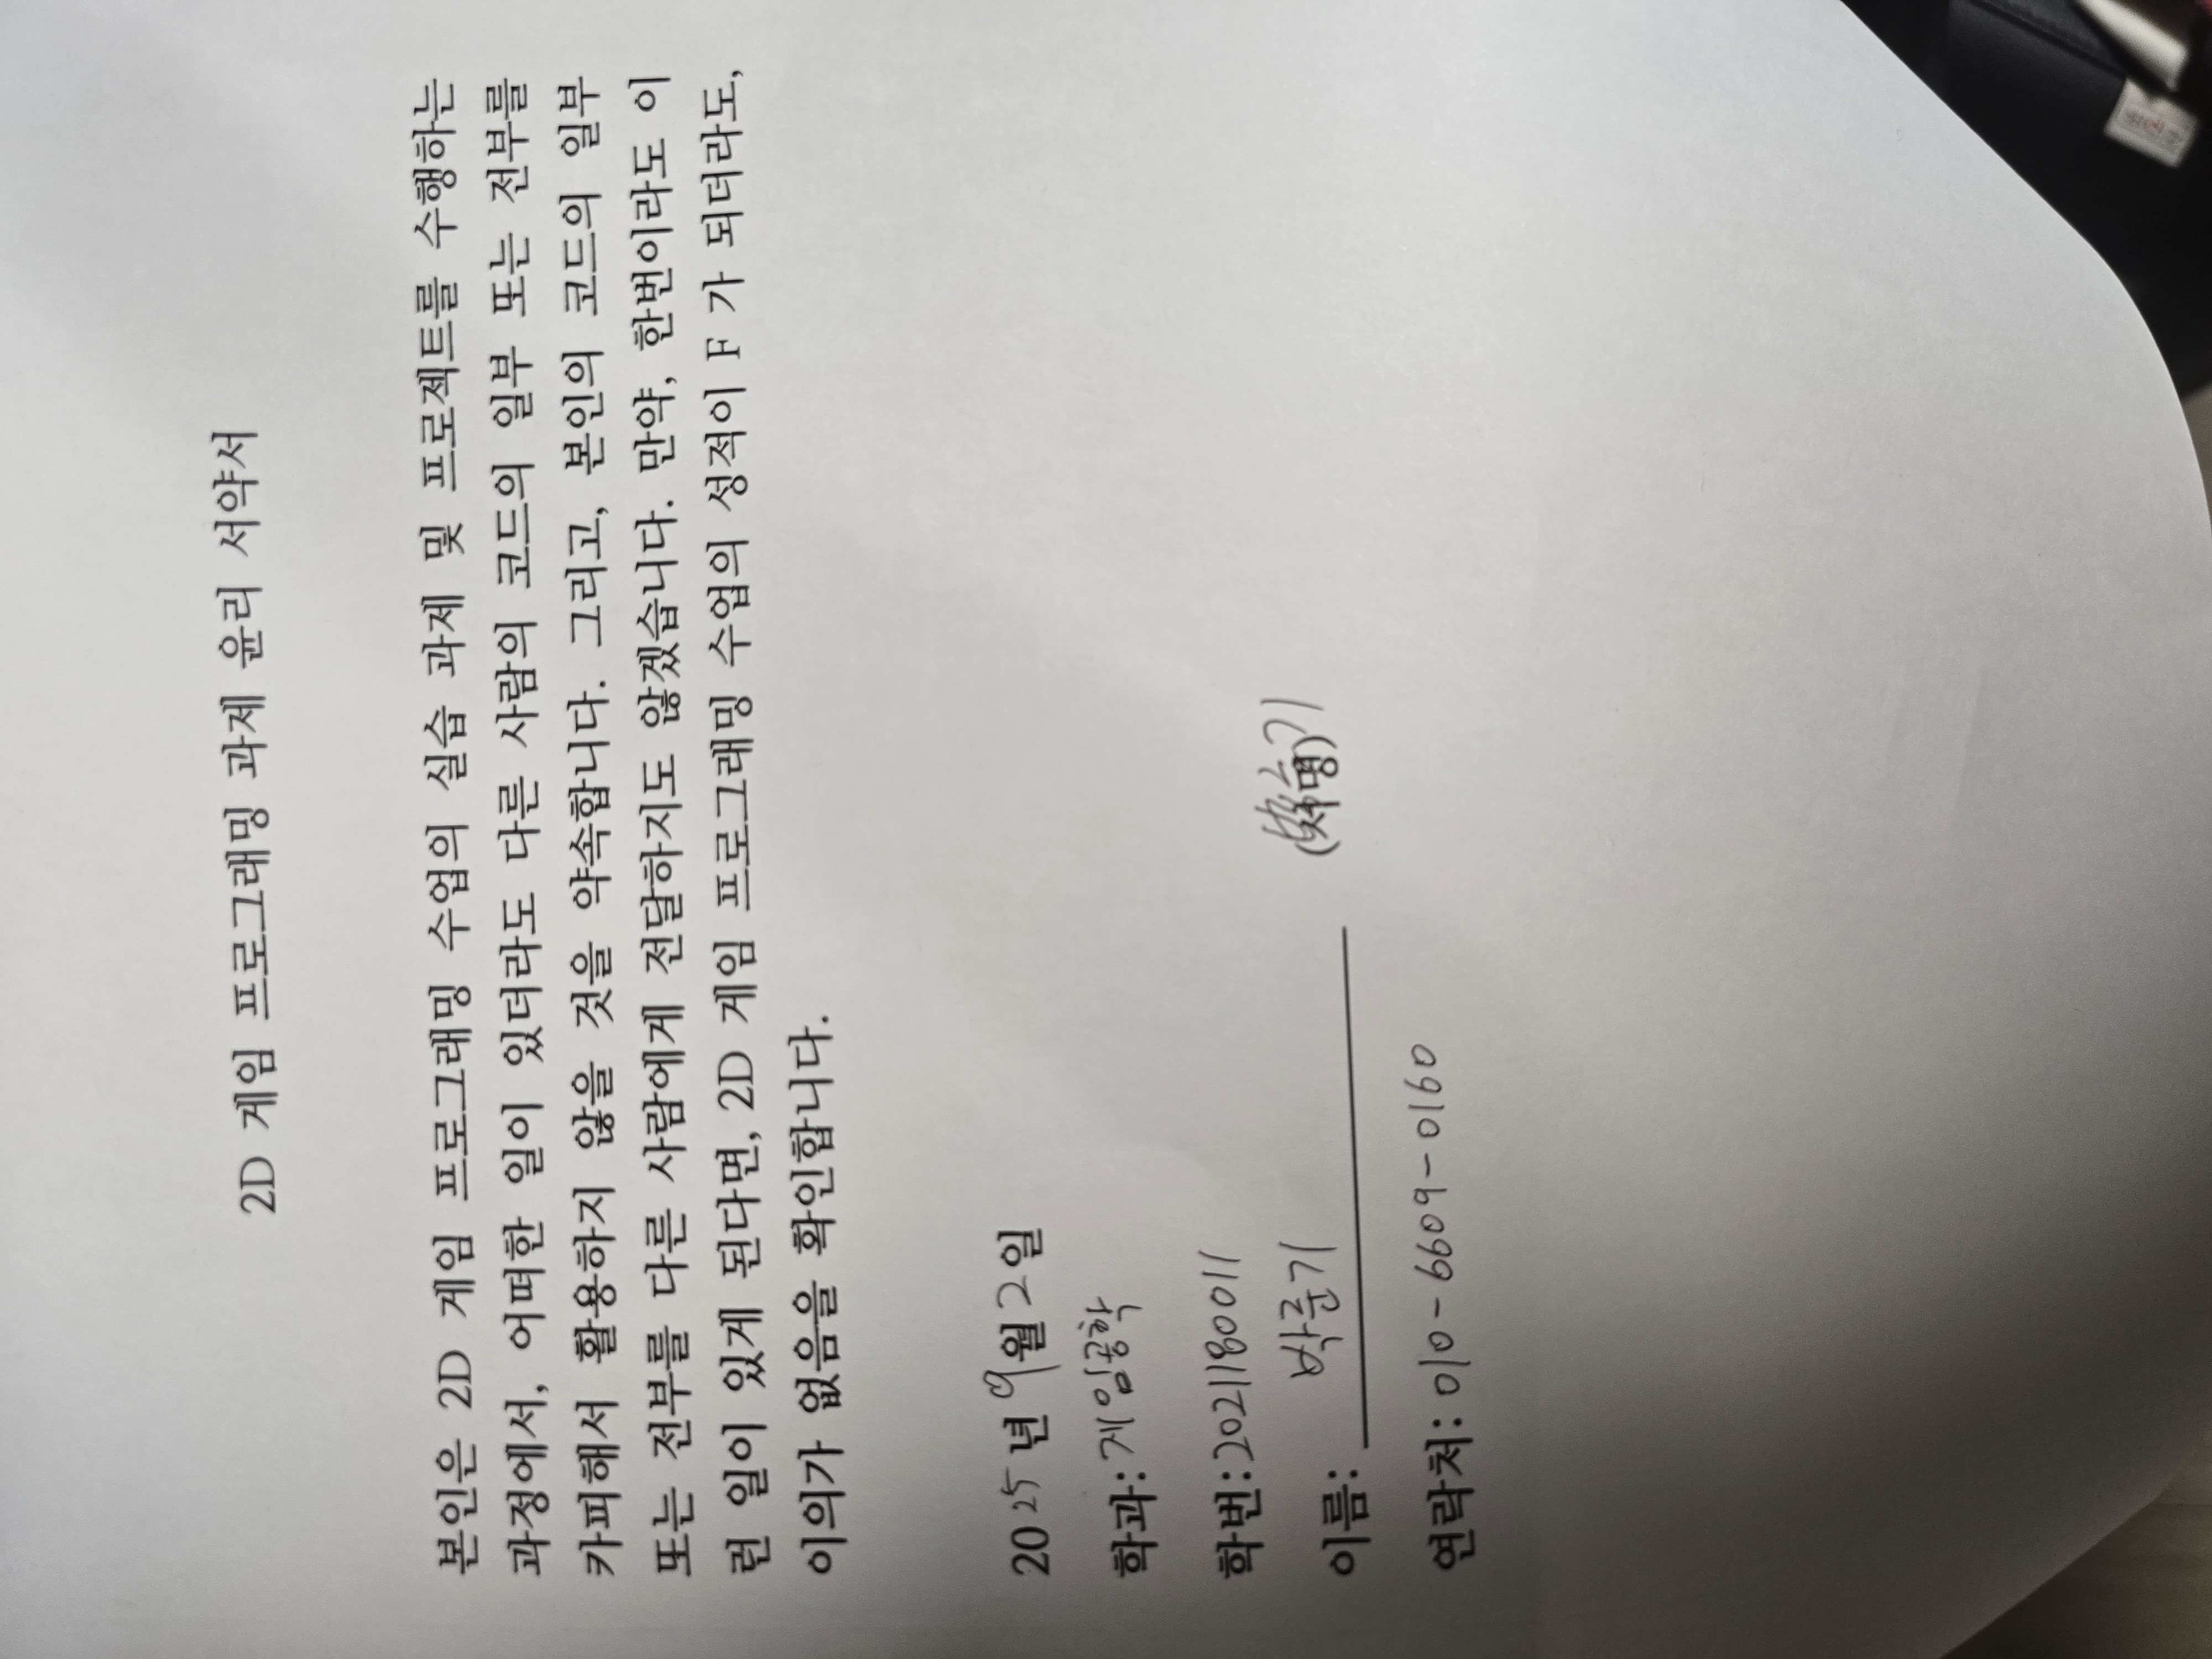 2D 게임 프로그래밍 과제 윤리 서약서
본인은 2D 게임 프로그래밍 수업의 실습 과제 및 프로젝트를 수행하는
과정에서, 어떠한 일이 있더라도 다른 사람의 코드의 일부 또는 전부를
카피해서 활용하지 않을 것을 약속합니다. 그리고, 본인의 코드의 일부
또는 전부를 다른 사람에게 전달하지도 않겠습니다. 만약, 한번이라도 이
런 일이 있게 된다면, 2D 게임 프로그래밍 수업의 성적이 F 가 되더라도,
이의가 없음을 확인합니다.
2025년 9월 2일
학과: 게임공학
학번: 2021180011
이름: 박준기 (서명) 박준기
연락처: 010-6609-0160